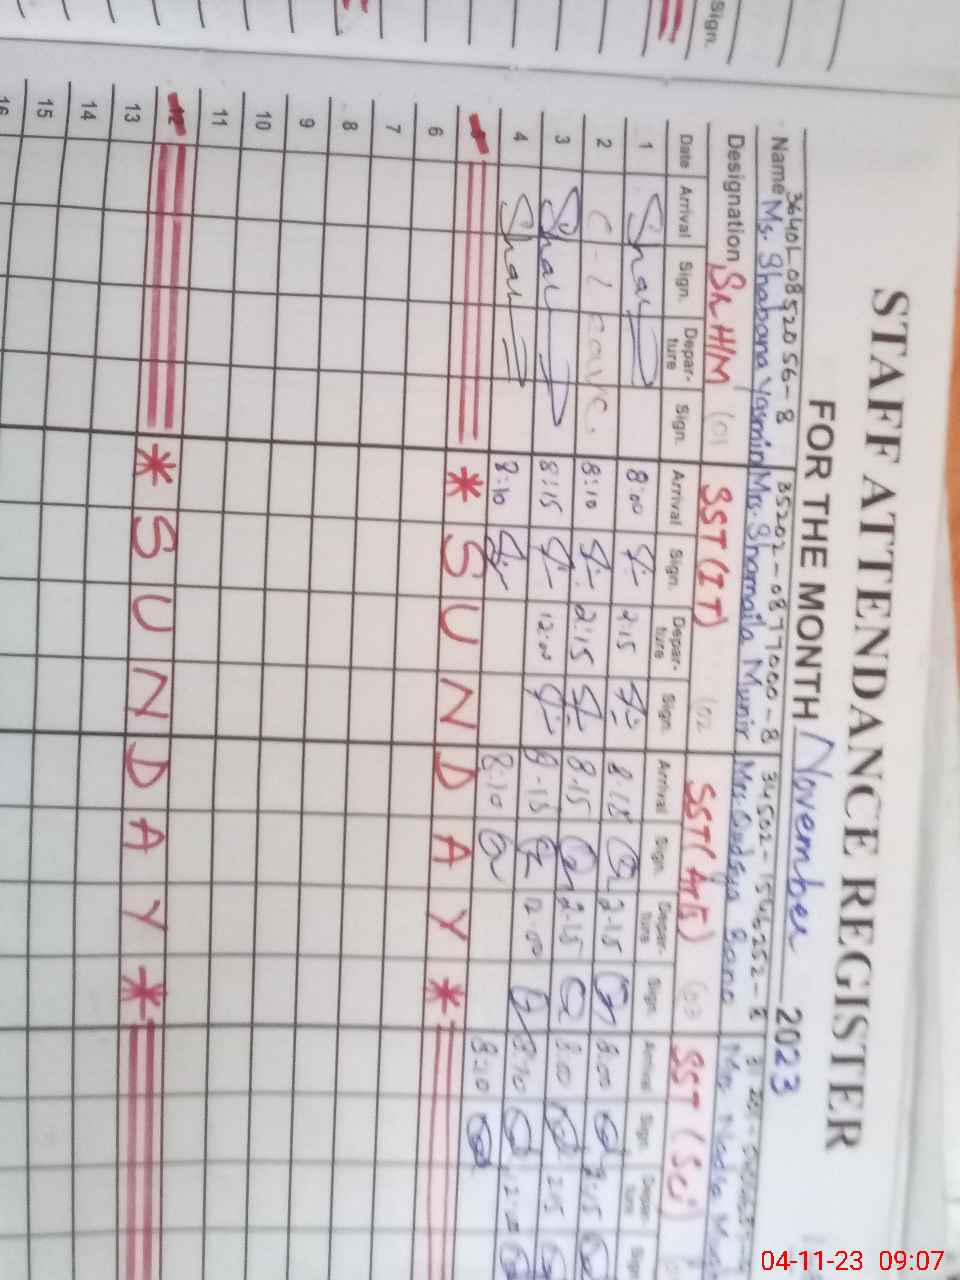 Sign.
STAFF ATTENDANCE REGISTER
FOR THE MONTH November 2023
36401-0852056-8 35202-0877000-8 34502-1546252-8
Name Ms. Shabana Yasmin Mrs. Shamaila Munir Mrs. Qudsya Bano Mrs. Nadia
Designation Sr H/M (01 SST (IT) (02 SST (Art) (03 SST (Sci)
Date Arrival Sign. Depar-ture Sign. Arrival Sign. Depar-ture Sign. Arrival Sign. Depar-ture Sign. Arrival Sign. Depar-ture Sign
1 8:00 2:15 8:15 2-15 8:00 2:15
2 C-Leave. 8:10 2:15 8-15 2-15 8:00 2:15
3 8:15 12:00 8-15 12:00 8:10 12:00
4 8:10 8:10 8:10
5 * SUNDAY *
6
7
8
9
10
11
12 * SUNDAY *
13
14
15
16
04-11-23 09:07